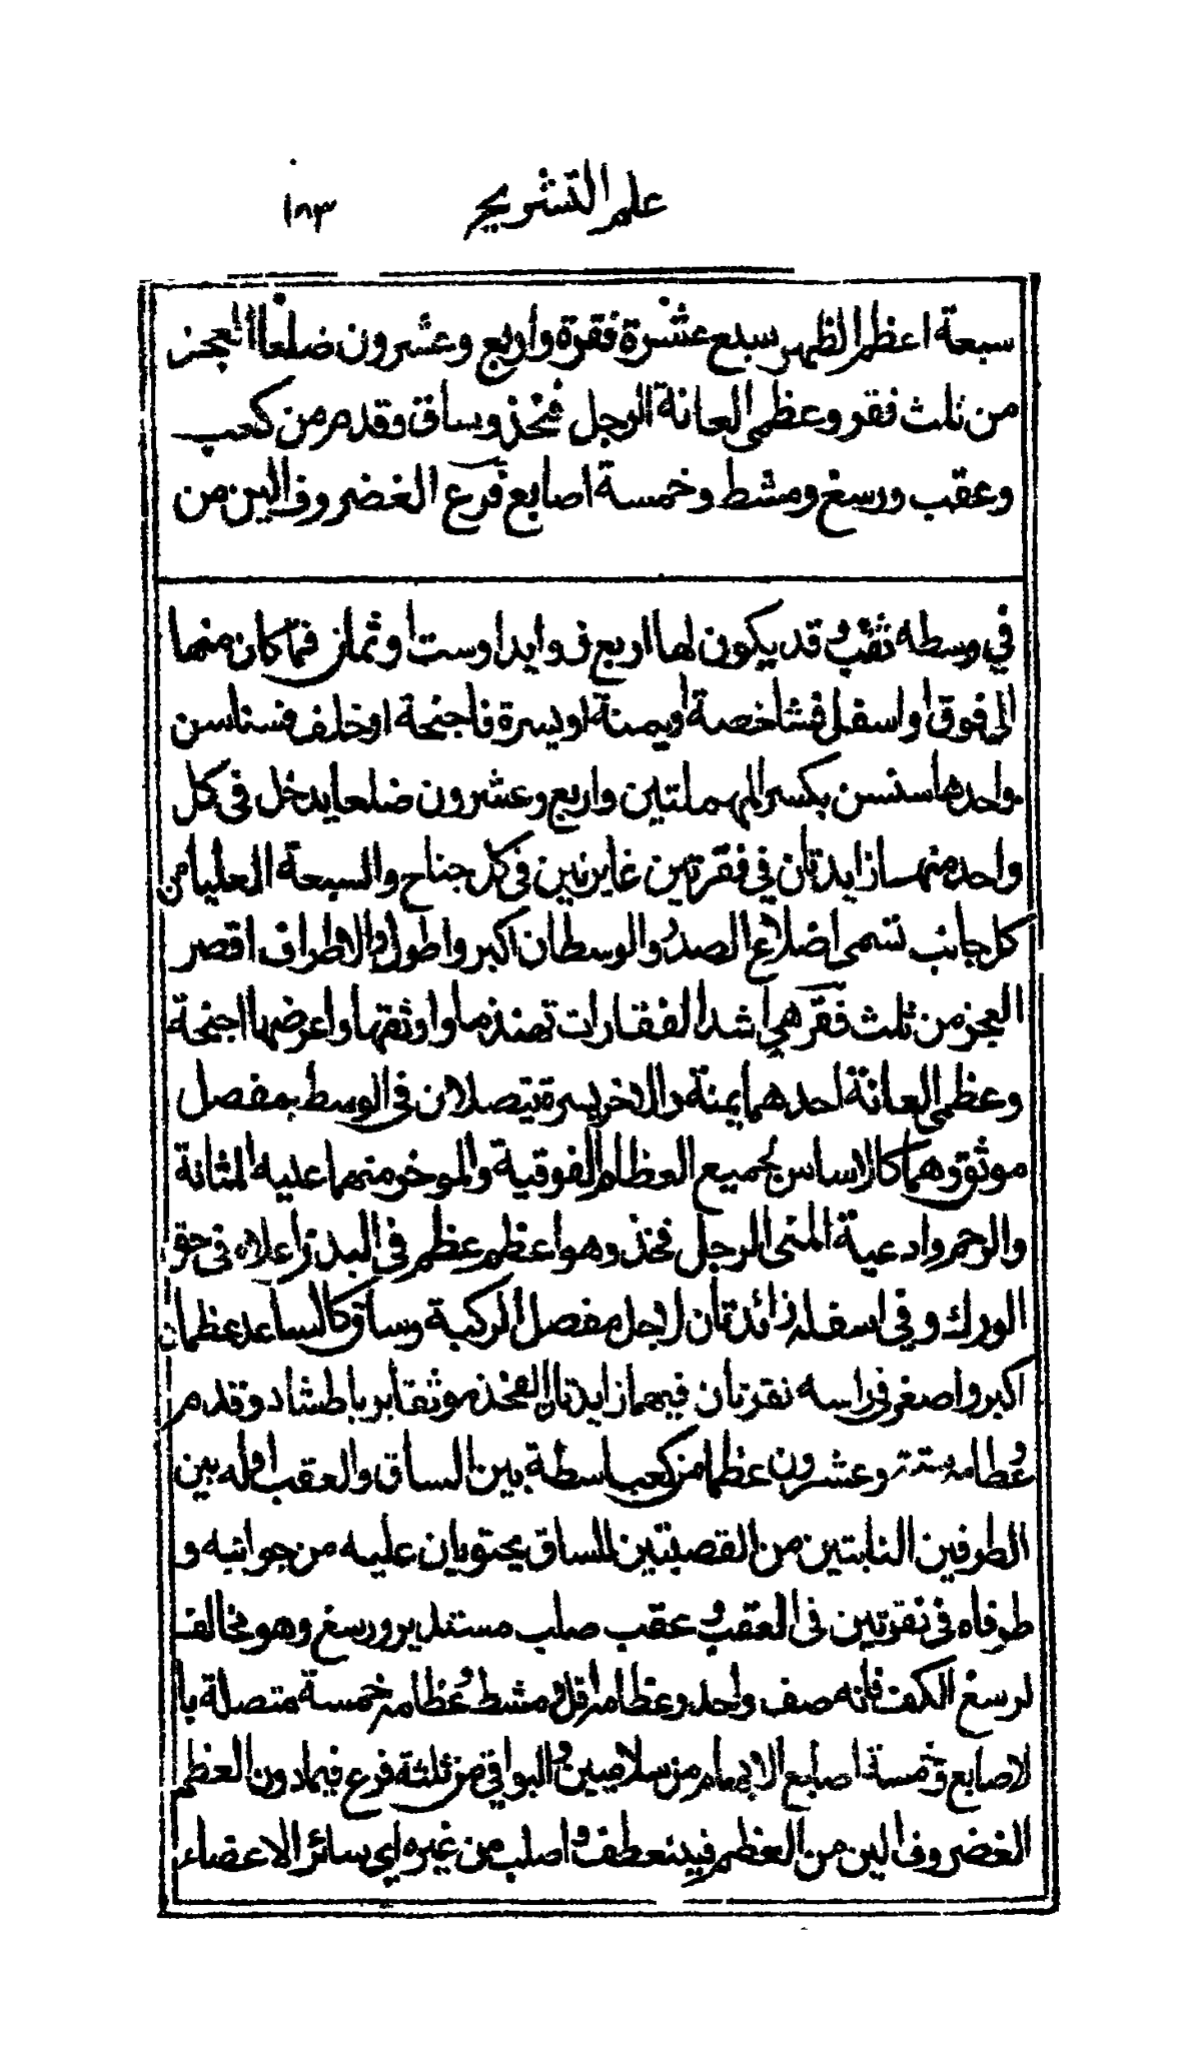 علم التشريح ١٨٣
سبعة اعظم الظهر سبع عشرة فقرة واربع وعشرون ضلعا العجز
من ثلث فقر وعظمى العانة الرجل فخذ وساق وقدم من كعب
وعقب ورسغ ومشط وخمسة اصابع فرع الغضروف الين من
في وسطه ثقب وقد يكون لها اربع زوايد او ست او ثمان فما كان منها
الى فوق او اسفل فشاخصة او يمنة او يسرة فاجنحة او خلف فسناسن
واحدها سنسن بكسر المهملتين واربع وعشرون ضلعا يدخل في كل
واحد منها زايدتان في فقرتين غايرتين في كل جناح والسبعة العليا من
كل جانب تسمى اضلاع الصدر والوسطان اكبر واطول والاطراف اقصر
العجز من ثلث فقر هي اشد الفقارات تهندما واوثقها واعرضها اجنحة
وعظمى العانة احدهما يمنة والاخر يسرة يتصلان في الوسط بمفصل
موثق وهما كالاساس لجميع العظام الفوقية والموخر منهما عليه المثانة
والرحم وادعية المنى الرجل فخذ وهو اعظم عظم في البدن اعلاه في حق
الورك وفي اسفله زائدتان لاجل مفصل الركبة وساق كالساعد عظمان
اكبر واصغر في راسه نقرتان فيهما زايدتا الفخذ موثقا برباط شاد وقدم
وعظامه ستة وعشرون عظما من كعب واسطة بين الساق والعقب اوله بين
الطرفين النابتين من القصبتين للساق يحتويان عليه من جوانبه و
طرفاه في نقرتين في العقب وعقب صلب مستدير ورسغ وهو مخالف
لرسغ الكف فانه صف واحد وعظامه اقل ومشط وعظامه خمسة متصلة با
لاصابع وخمسة اصابع الابهام من سلاميين والبواقي من ثلثة فرع فيما دون العظم
الغضروف الين من العظم فينعطف واصلب من غيره اي سائر الاعضاء